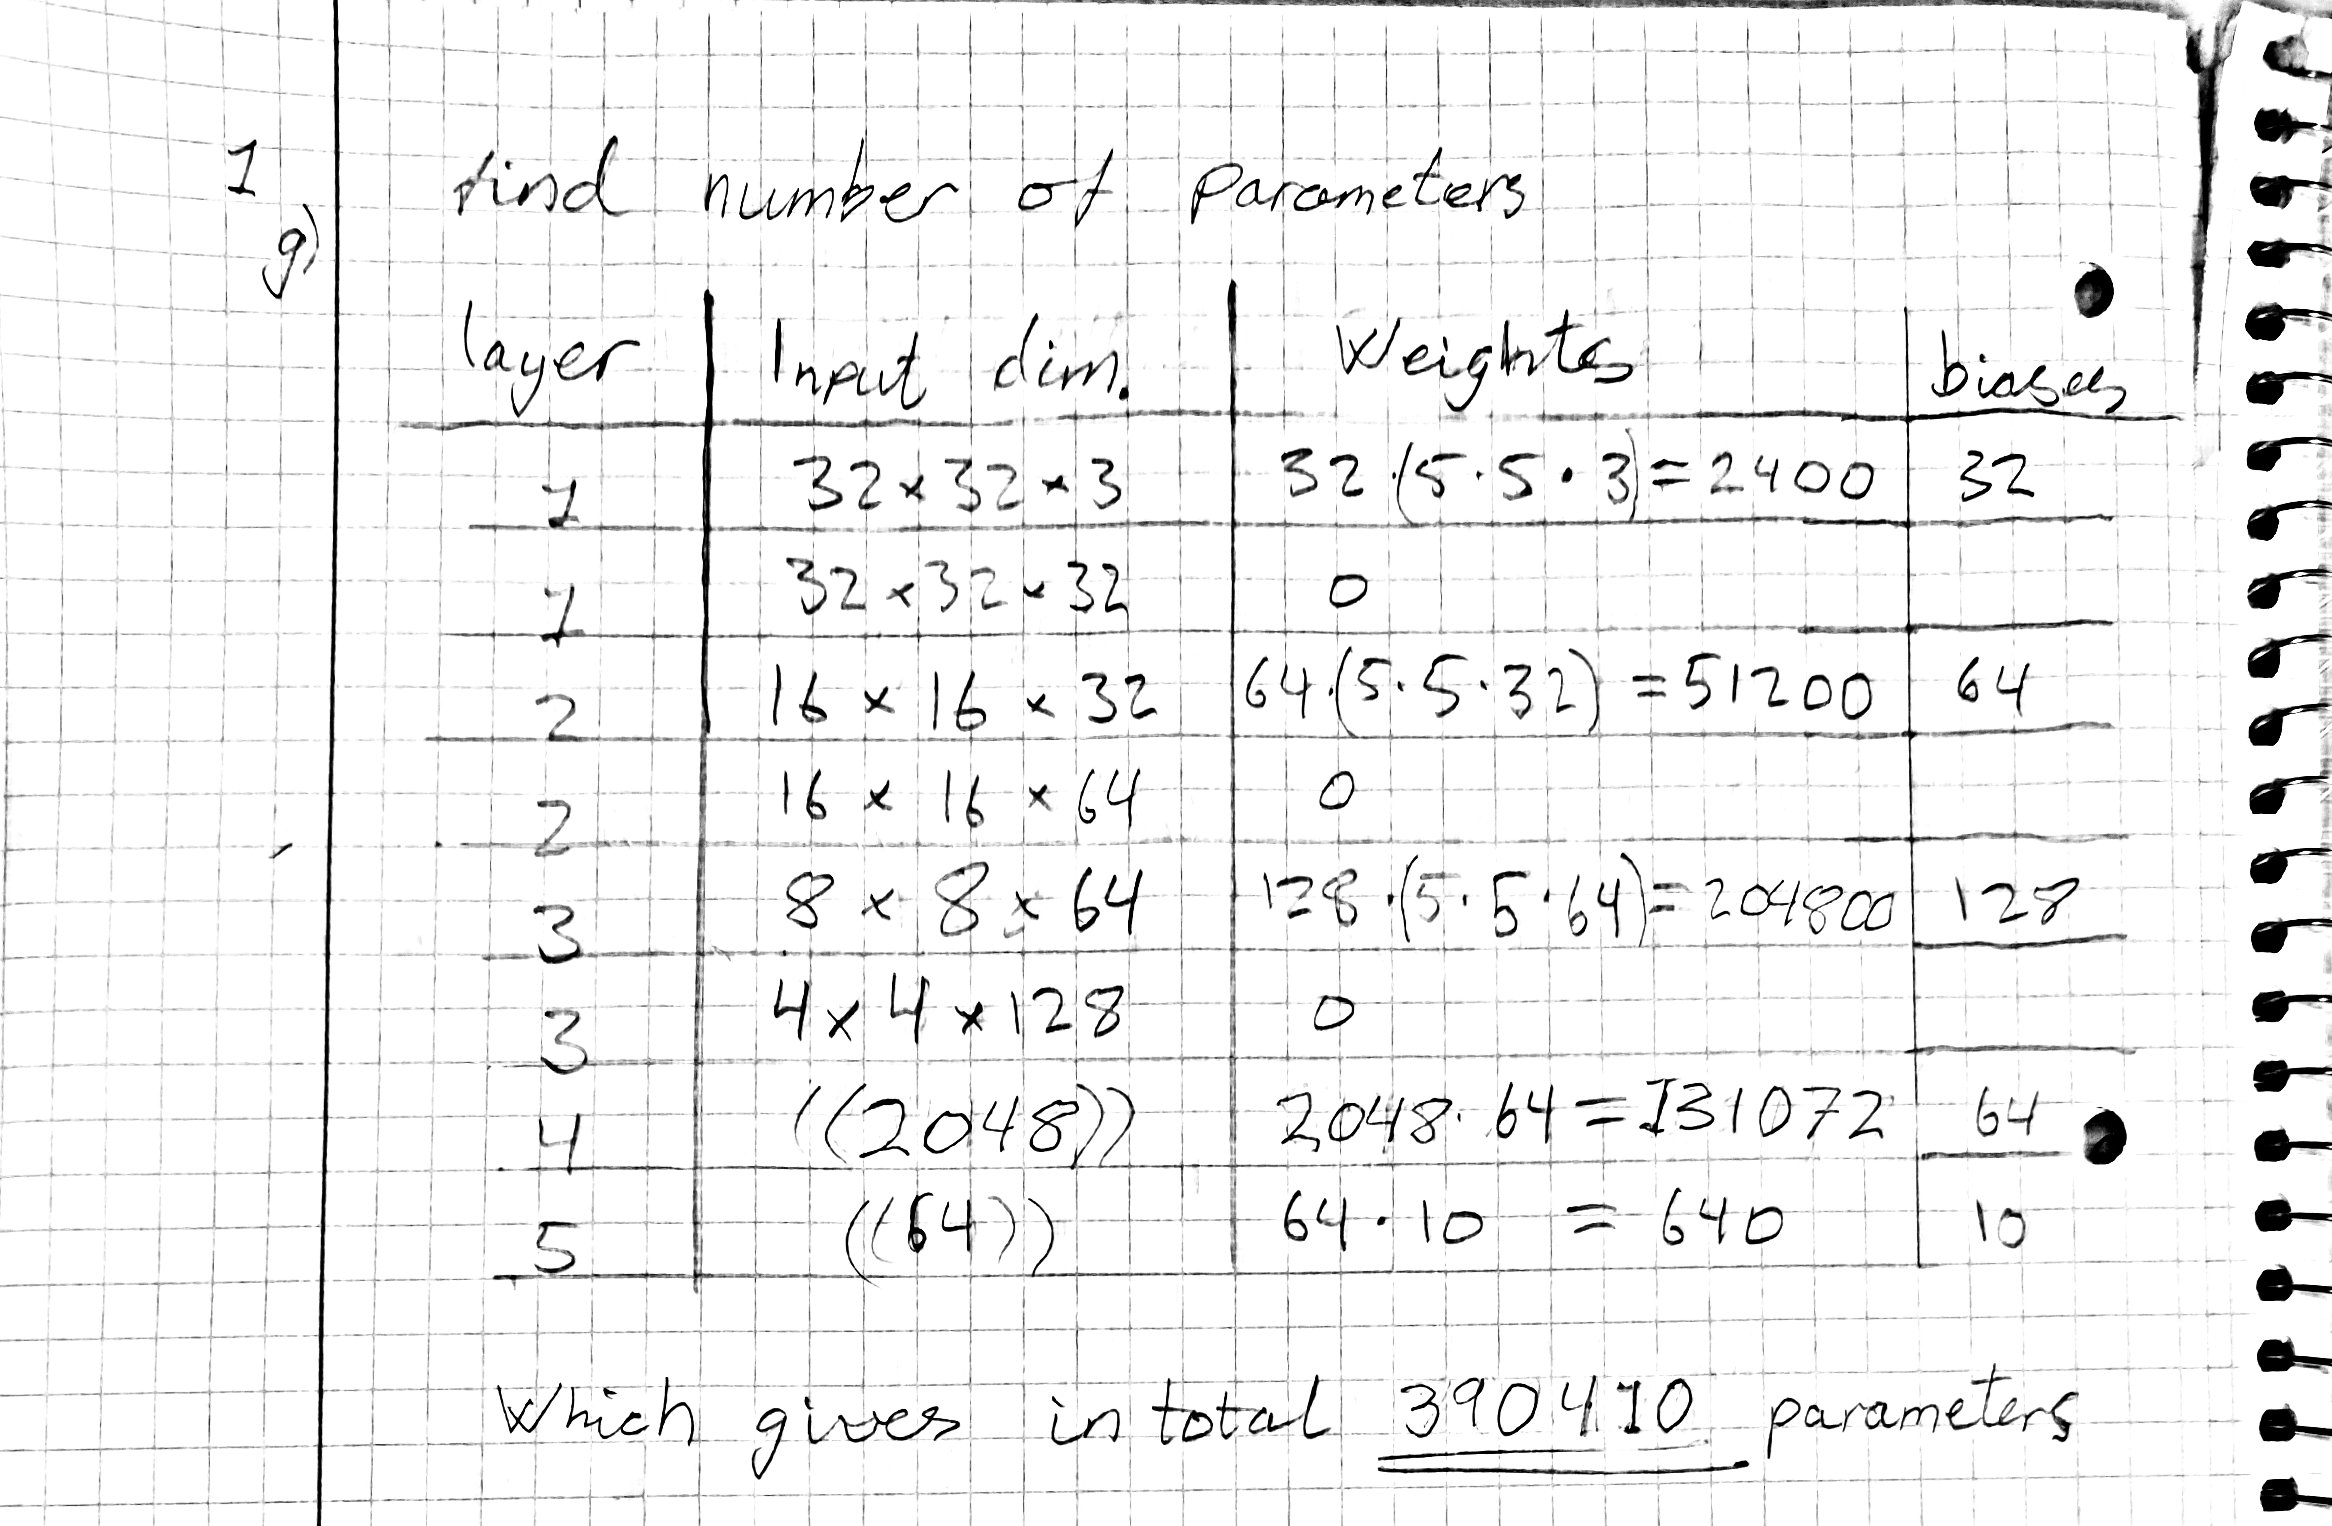 1 find number of parameters
g)
layer Input dim. Weights biases
1 32 × 32 × 3 32 · (5 · 5 · 3) = 2400 32
1 32 × 32 × 32 0
2 16 × 16 × 32 64 · (5 · 5 · 32) = 51200 64
2 16 × 16 × 64 0
3 8 × 8 × 64 128 · (5 · 5 · 64) = 204800 128
3 4 × 4 × 128 0
4 ((2048)) 2048 · 64 = 131072 64
5 ((64)) 64 · 10 = 640 10
Which gives in total 390410 parameters